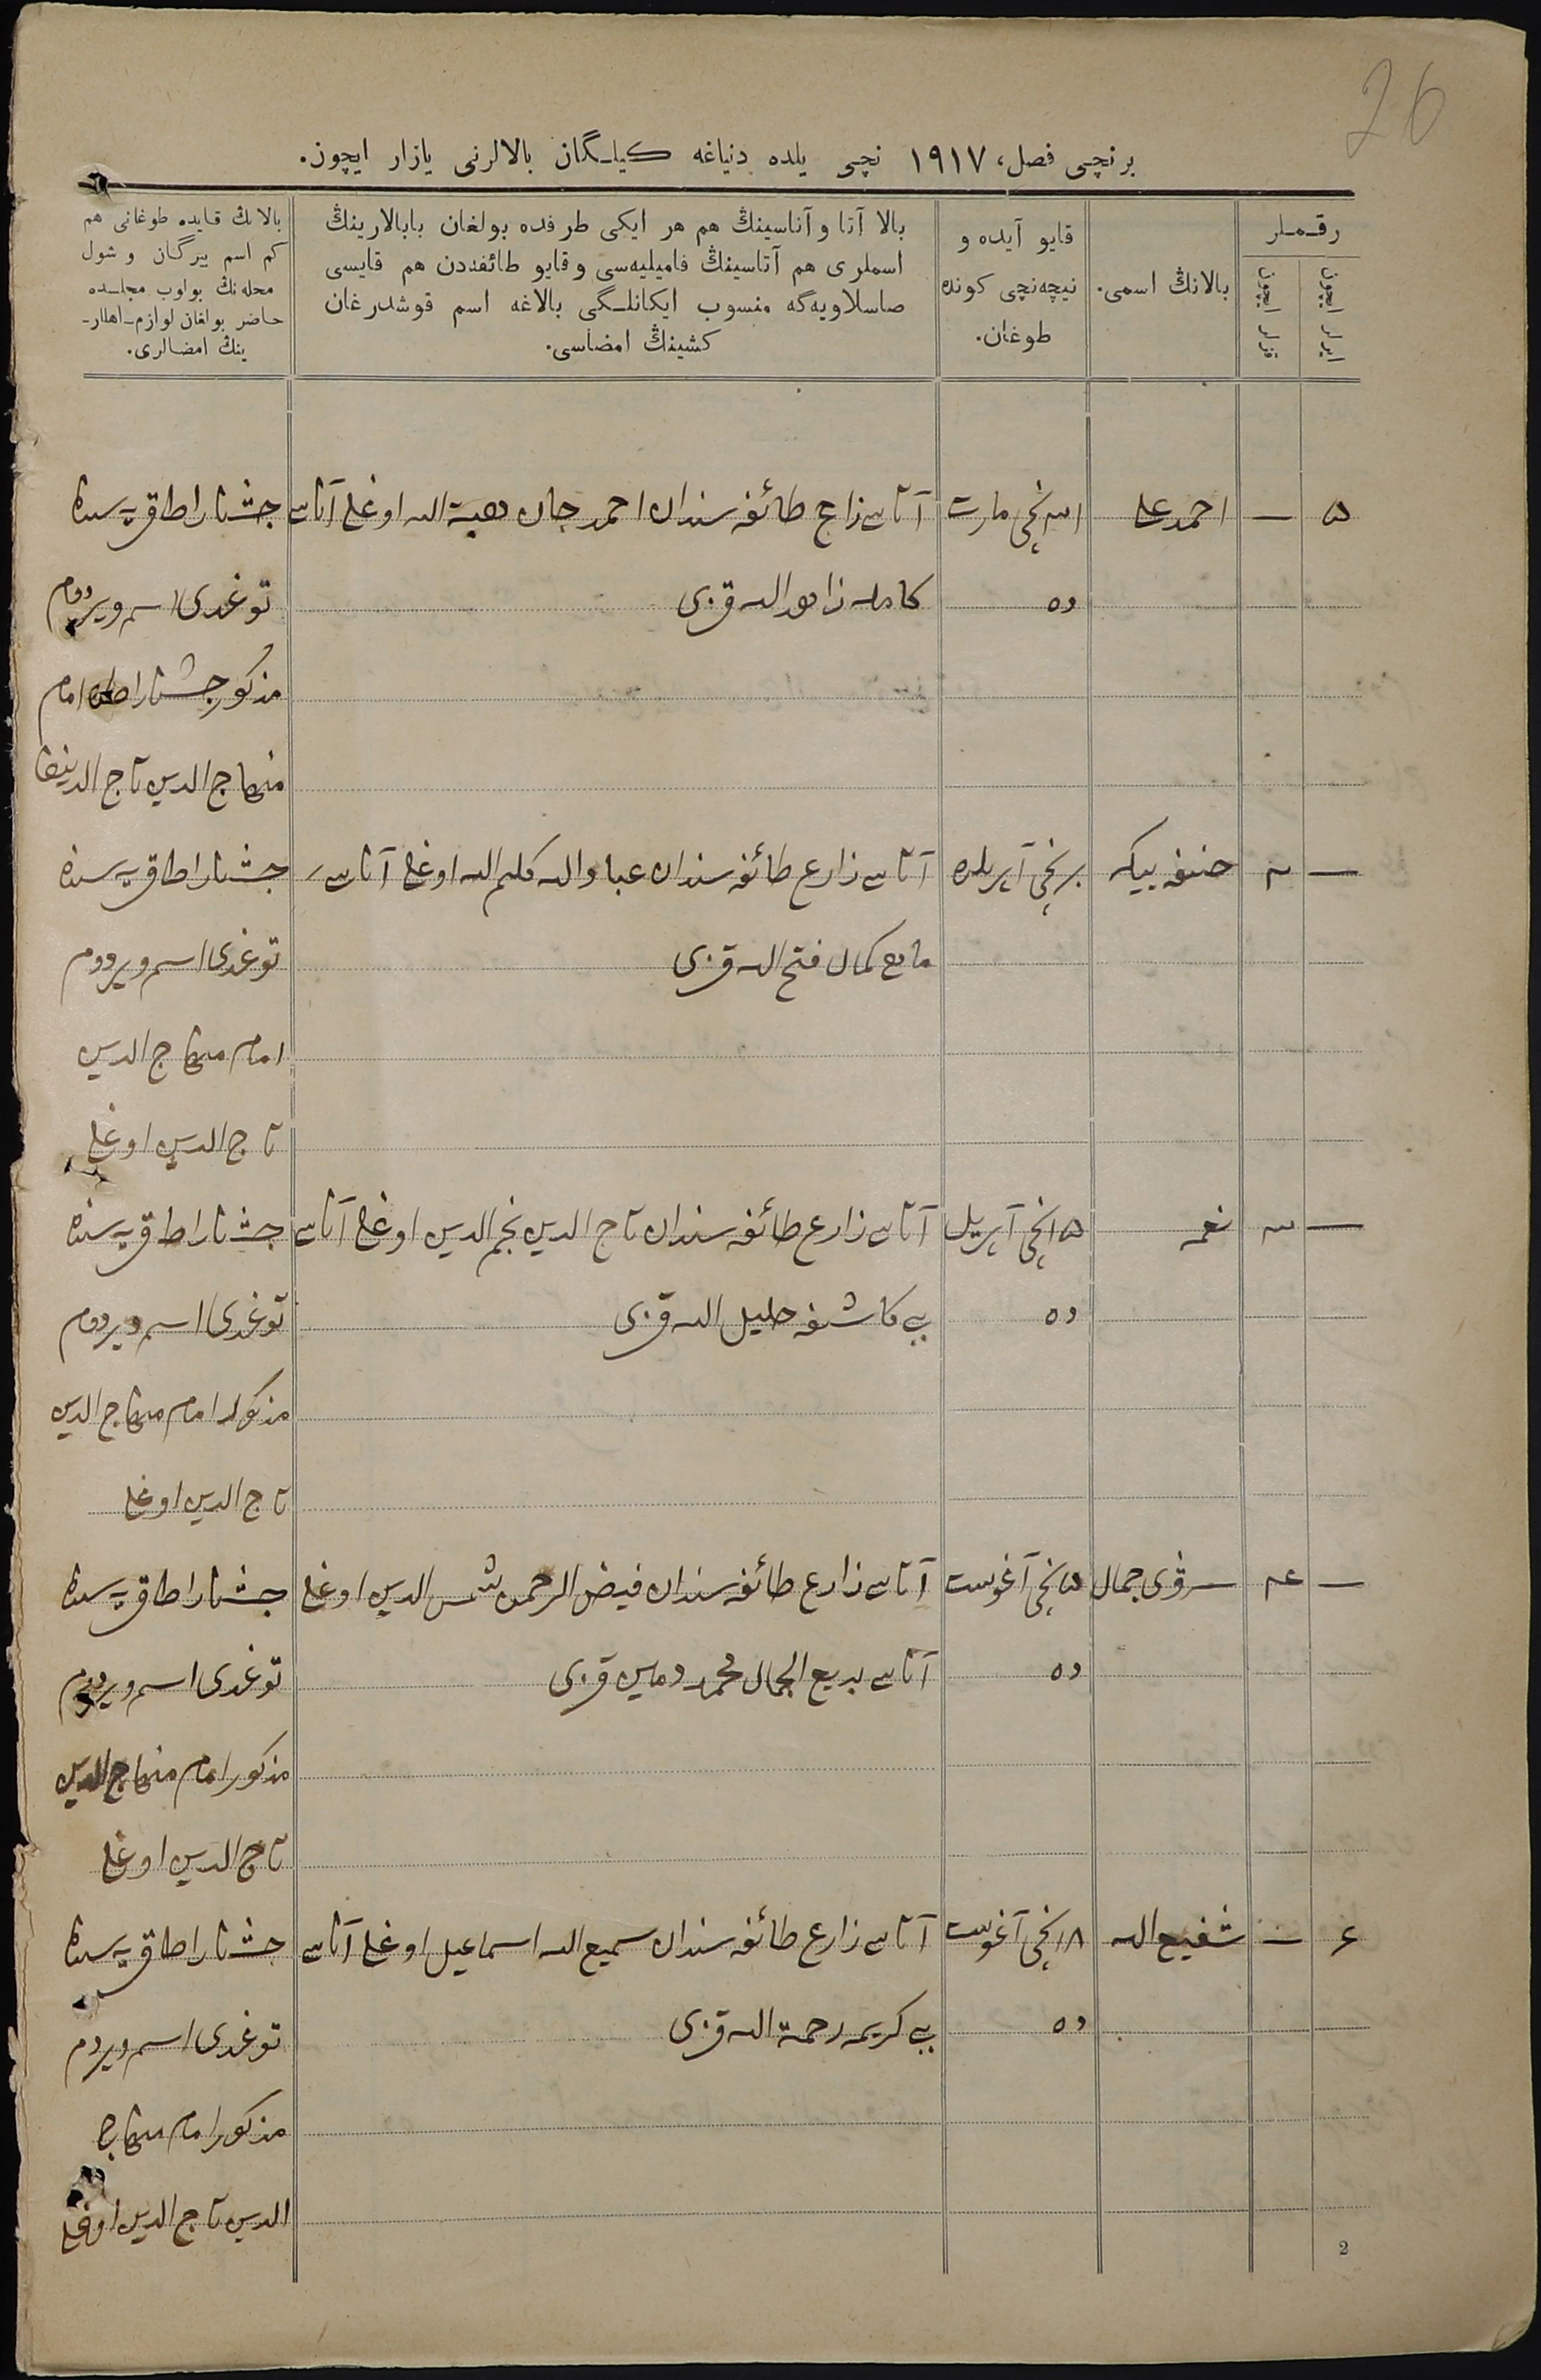 26
برنچی فصل، ۱۹۱۷ نچی یلده دنیاغه کیلـگان بالالرنی یازار ایچون.
رقـملر
ایرلر ایچون
قزلر ایچون
بالانڭ اسمی.
قایو آیده و
نیچه‌نچی کونده
طوغان.
بالا آتا و آناسینڭ هم هر ایکی طرفده بولغان بابالارینڭ
اسملری هم آتاسینڭ فامیلیه‌سی و قایو طائفه‌دن هم قایسی
صاسلاویه‌گه منسوب ایکانلـگی بالاغه اسم قوشدرغان
کشینڭ امضاسی.
بالانڭ قایده طوغانی هم
کم اسم بیرگان و شول
محله‌نڭ بولوب مجلـسده
حاضر بولغان لوازم-اهللر-
ینڭ امضالری.
۵ — احمد علی نچی مارت آتاسی زارع طائفه سندان احمد جان هبة الله اوغلی آناسی قریه سنده
ده کامله قزی توغدی اسم ویردوم
مذکور امام
منهاج الدین تاج الدینف
— ۲ حنیفه بیکه برنچی آپریلده آتاسی زارع طائفه سندان کلیم الله اوغلی آناسی قریه سنده
کمال فتح الله قزی توغدی اسم ویردوم
امام منهاج الدین
تاج الدین اوغلی
— ۳ نعمه ۱۵نچی آپریل آتاسی زارع طائفه سندان تاج الدین نجم الدین اوغلی آناسی قریه سنده
ده بی کاشفه خلیل الله قزی توغدی اسم ویردوم
مذکور امام منهاج الدین
تاج الدین اوغلی
— ۴ سروی جمال نچی آغوست آتاسی زارع طائفه سندان فیض الرحمن شمس الدین اوغلی قریه سنده
ده آناسی بدیع الجمال محمد قزی توغدی اسم ویردوم
مذکور امام منهاج الدین
تاج الدین اوغلی
۶ — شفیع الله ۱۸نچی آغوست آتاسی زارع طائفه سندان سمیع الله اسماعیل اوغلی آناسی قریه سنده
ده بی کریمه رحمة الله قزی توغدی اسم ویردم
مذکور امام منهاج
الدین تاج الدین اوغلی
2